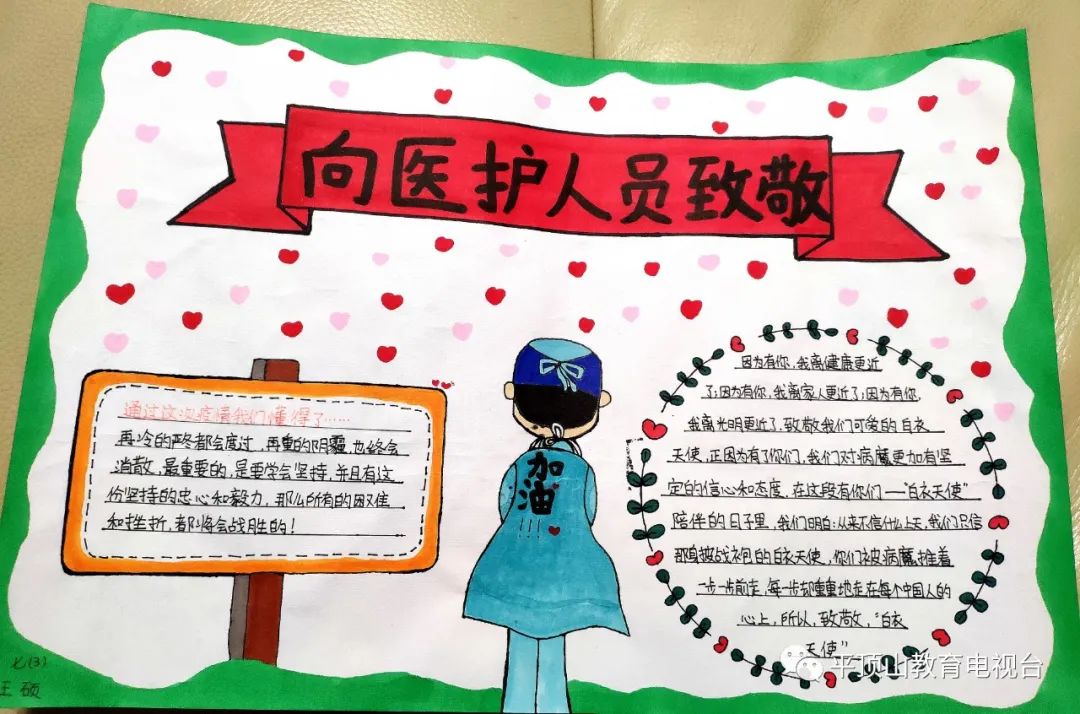 向医护人员致敬
通过这次疫情我们懂得了……
再冷的严冬都会度过,再重的阴霾也终会
消散,最重要的,是要学会坚持,并且有这
份坚持的忠心和毅力,那么所有的困难
和挫折,都将会战胜的!
加油
!!!
因为有你,我离健康更近
了;因为有你,我离家人更近了;因为有你,
我离光明更近了,致敬我们可爱的白衣
天使,正因为有了你们,我们对病魔更加有坚
定的信心和态度,在这段有你们——“白衣天使”
陪伴的日子里,我们明白:从来不信什么上天,我们只信
那身披战袍的白衣天使,你们被病魔推着
一步一步前走,每一步却重重地走在每个中国人的
心上,所以,致敬,“白衣
天使”
七(3)
王硕
平顶山教育电视台